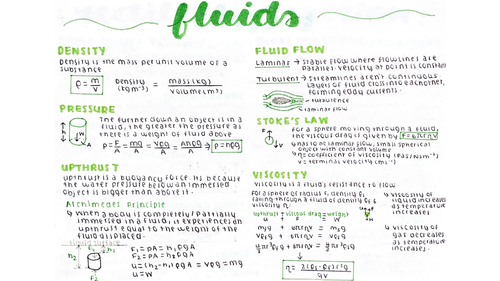 fluids
DENSITY
Density is the mass per unit volume of a
substance
ρ = m/V
Density (kgm⁻³) = mass (kg) / volume (m³)
PRESSURE
The further down an object is in a
fluid, the greater the pressure as
there is a weight of fluid above
P = F/A = mg/A = Vρg/A = Ahρg/A → P = hρg
UPTHRUST
Upthrust is a buoyancy force. It's because
the water pressure below an immersed
object is bigger than above it.
Archimedes Principle
↳ When a body is completely/partially
immersed in a fluid, it experiences an
upthrust equal to the weight of the
fluid displaced.
liquid surface
h₁
F₁
h₂
F₂
F₁ = PA = h₁ρgA
F₂ = PA = h₂ρgA
U = (h₂-h₁)ρgA = Vρg = mg
U = W
FLUID FLOW
Laminar → Stable flow where flowlines are
parallel. Velocity at point is constant
Turbulent → Streamlines aren't continuous
Layers of fluid cross into each other,
forming eddy currents.
turbulence
laminar flow
STOKE'S LAW
For a sphere moving through a fluid,
the viscous drag is given by F = 6πrηV
↳ has to be laminar flow, small spherical
object with constant volume
η = coefficient of viscosity
V = terminal velocity (ms⁻¹)
VISCOSITY
Viscosity is a fluids resistance to flow
For a sphere of radius r, density ρs
falling through a fluid of density ρf &
viscosity η:
upthrust + viscous drag = weight
mfg + 6πrηV = msg
Vρfg + 6πrηV = Vρsg
4/3πr³ρfg + 6πrηV = 4/3πr³ρsg
η = 2(ρs-ρf)r²g / 9V
↳ viscosity of
liquid increases
as temperature
increases
↳ viscosity of
gas decreases
as temperature
increases.